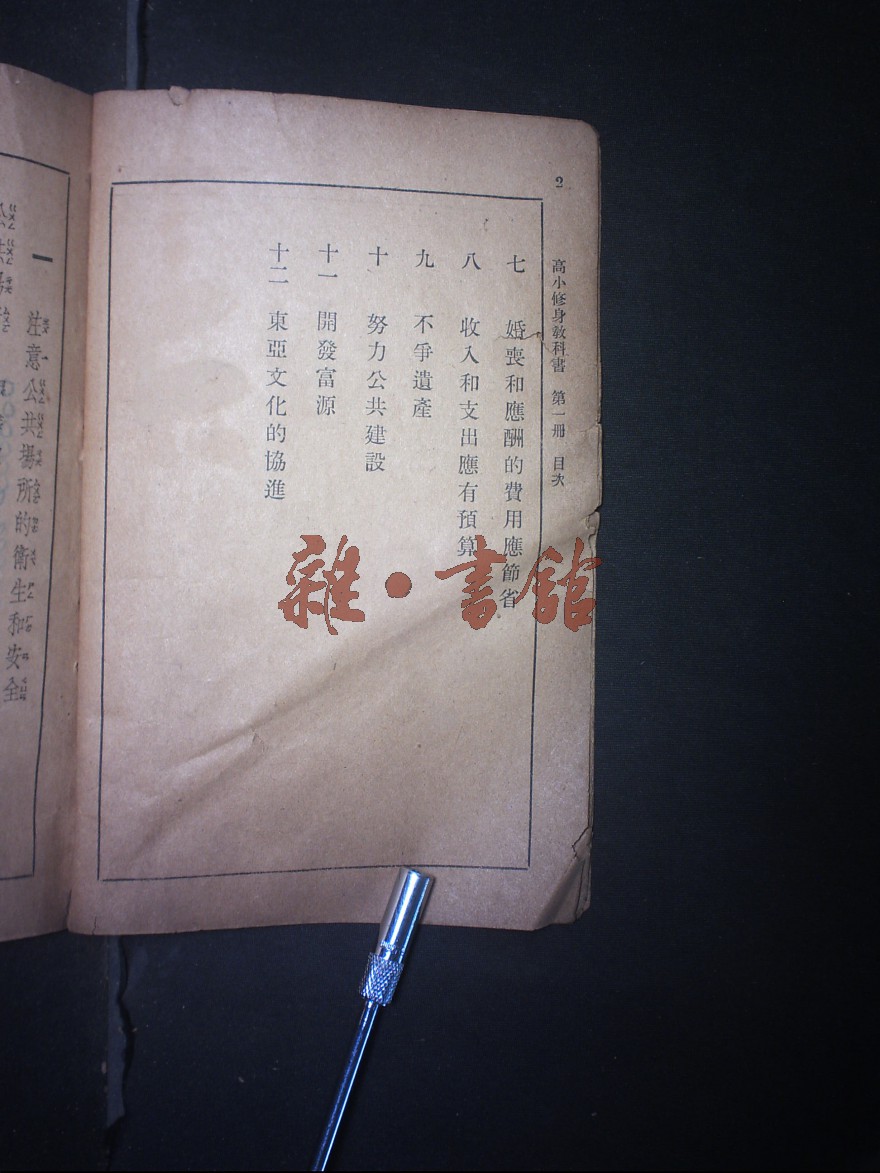 2
高小修身教科書 第一冊 目次
七 婚喪和應酬的費用應節省
八 收入和支出應有預算
九 不爭遺產
十 努力公共建設
十一 開發富源
十二 東亞文化的協進
一 注意公共場所的衛生和安全
雜·書館